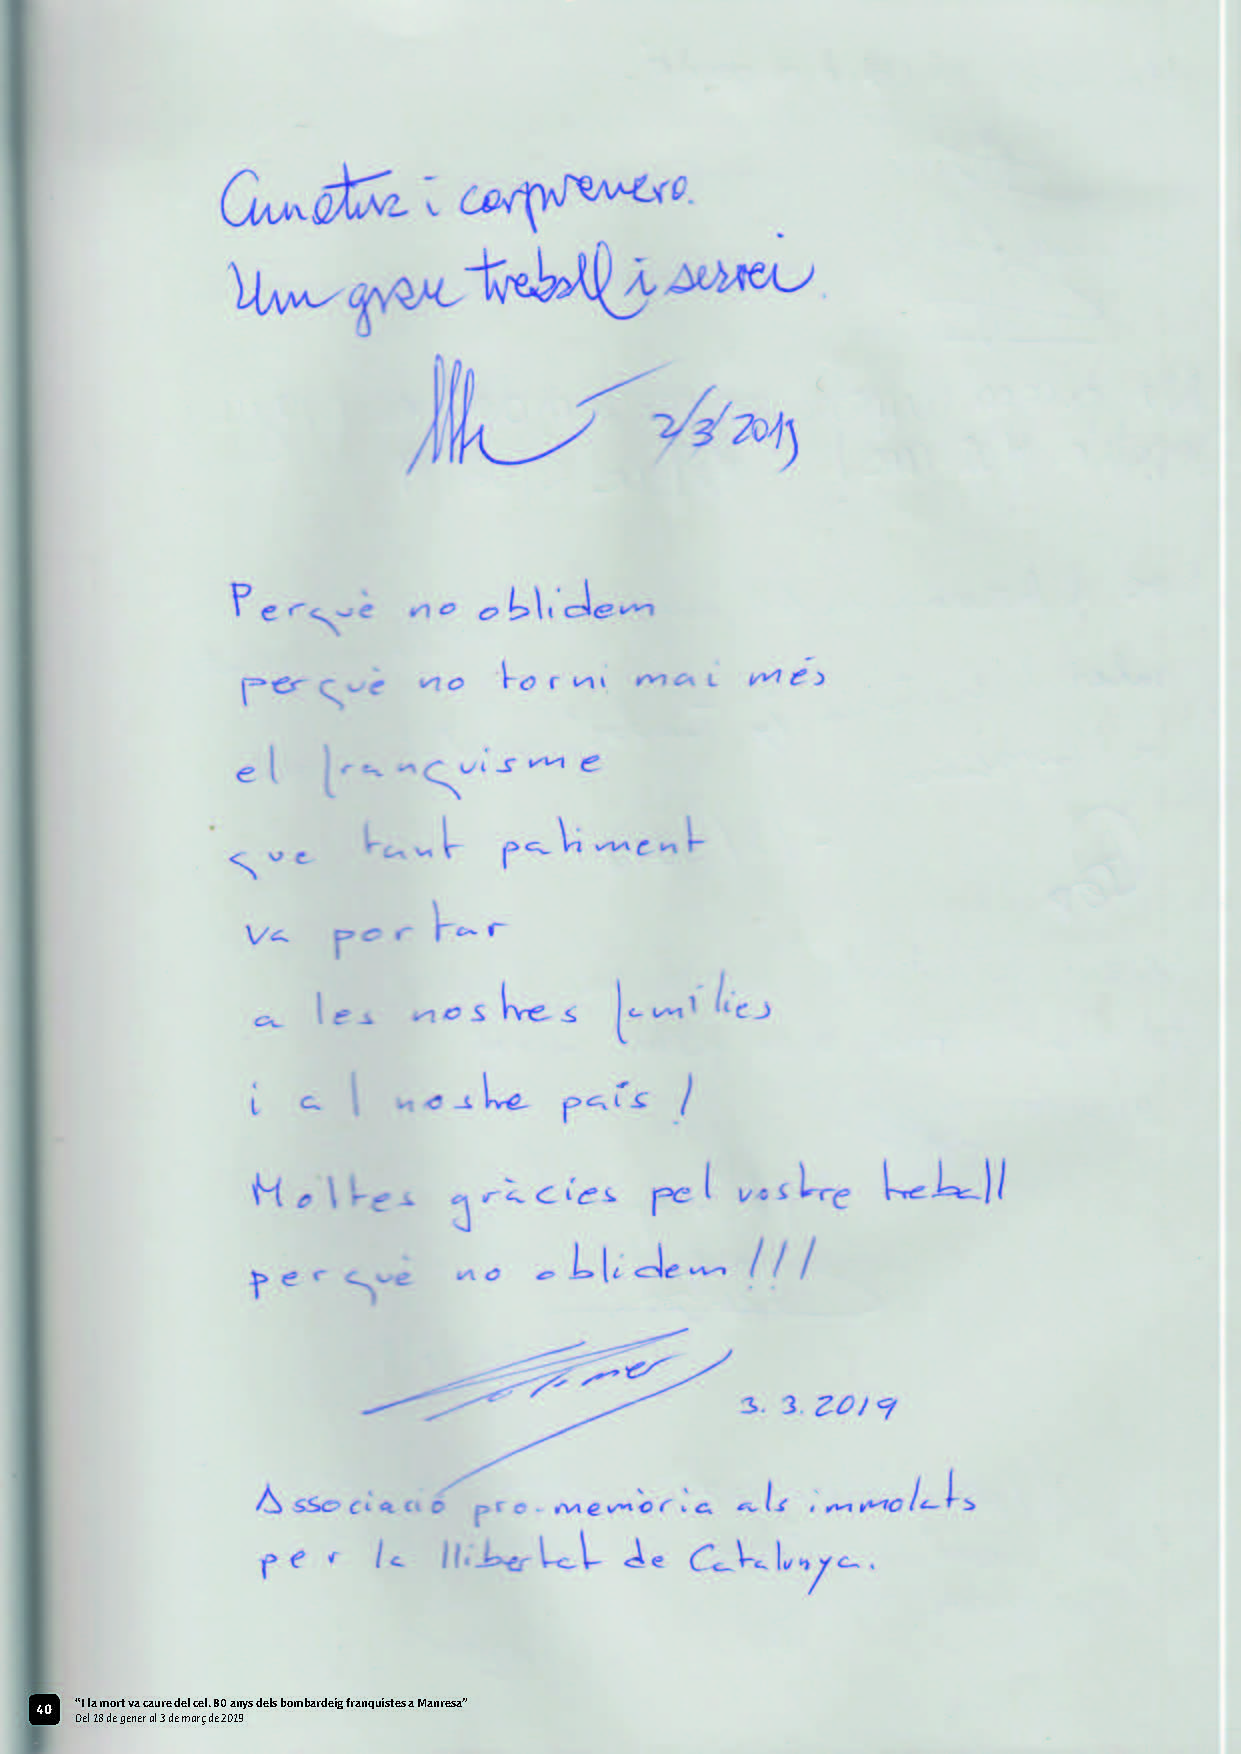 i corprenero.
Un gran treball i servei.
2/3/2019
Perquè no oblidem
perquè no torni mai més
el franquisme
que tant patiment
va portar
a les nostres famílies
i al nostre país!
Moltes gràcies pel vostre treball
perquè no oblidem!!!
3.3.2019
Associació pro-memòria als immolats
per la llibertat de Catalunya.
40
“I la mort va caure del cel. 80 anys dels bombardeig franquistes a Manresa”
Del 18 de gener al 3 de març de 2019